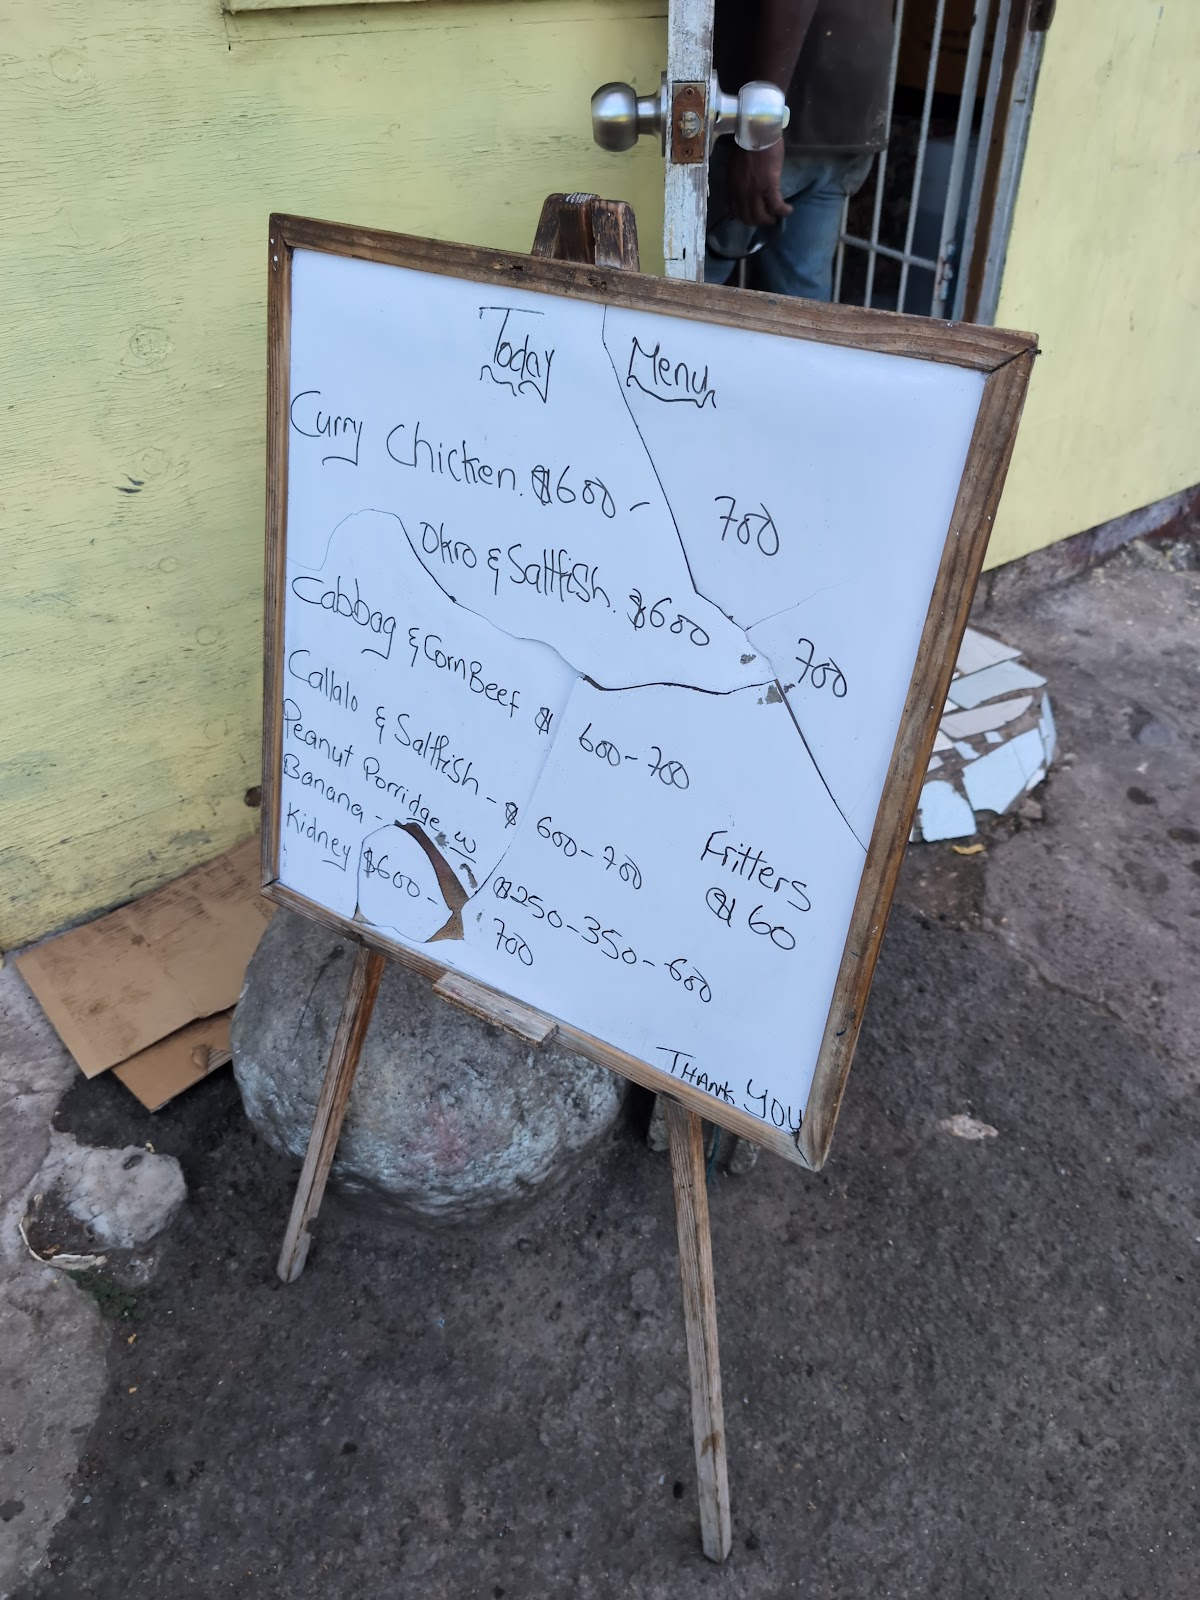 Today Menu
Curry Chicken. $600 - 700
Okro & Saltfish. $600 700
Cabbag & Corn Beef $ 600-700
Callalo & Saltfish - $ 600-700
Peanut Porridge w
Banana - $250-350-600
Kidney $600- 700
Fritters
$ 60
THANK YOU